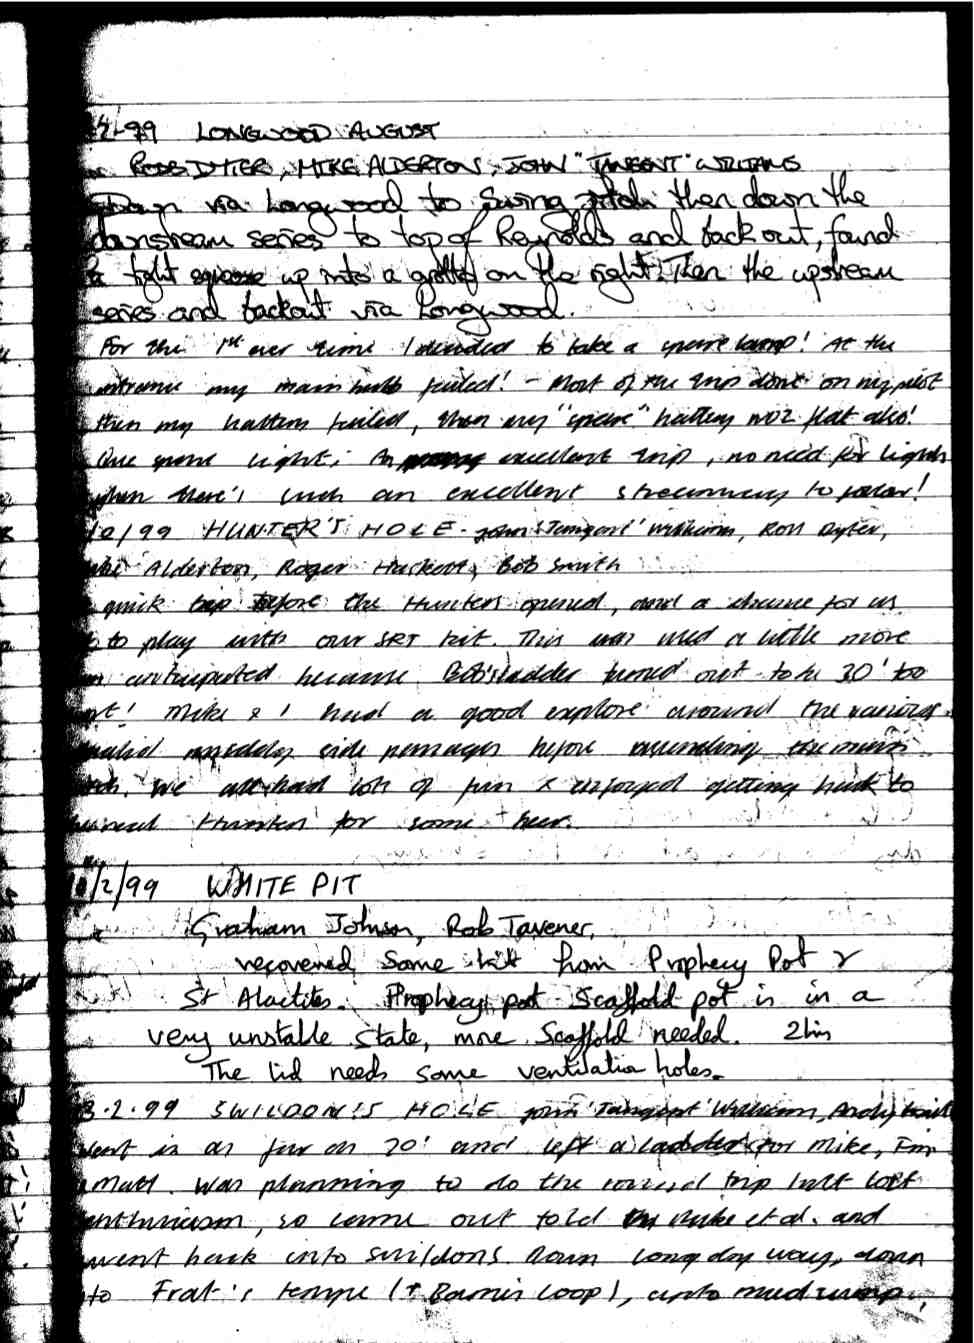 2-99 LONGWOOD AUGUST
ROSS DYTER, MIKE ALDERTON, JOHN "TANGENT" WILLIAMS
Down via Longwood to Swing pitch then down the
downstream series to top of Reynolds and back out, found
a tight squeeze up into a grotto on the right. Then the upstream
series and backout via Longwood.
For the 1st ever time I decided to take a spare lamp! At the
entrance my main bulb failed! - Most of the trip done on my pilot
then my battery failed, then my "spare" battery was flat also!
One spare light; An excellent trip, no need for lights
when there's such an excellent streamway to follow!
/2/99 HUNTER'S HOLE - John 'Tangent' Williams, Ross Dyter,
Alderton, Roger Haskett, Bob Smith
quick trip before the Hunters opened, and a chance for us
to play with our SRT kit. This was used a little more
anticipated because Bob's ladder turned out to be 30' too
! Mike & I had a good explore around the various
muddy side passages before ascending the main
We all had lots of fun & enjoyed getting back to
Hunters' for some beer.
/2/99 WHITE PIT
Graham Johnson, Rob Taverner,
recovered some kit from Prophecy Pot &
St Alactites. Prophecy pot Scaffold pot is in a
very unstable state, more Scaffold needed. 2hrs
The lid needs some ventilation holes.
3.2.99 SWILDON'S HOLE John 'Tangent' Williams, Andy
Went in as far as 20' and left a ladder for Mike, Fin
Matt. Was planning to do the round trip but lost
enthusiasm, so came out told Mike et al. and
went back into Swildons. Down long dry way, down
to Trat's temple (↑ Barnes Loop), into mud sump,